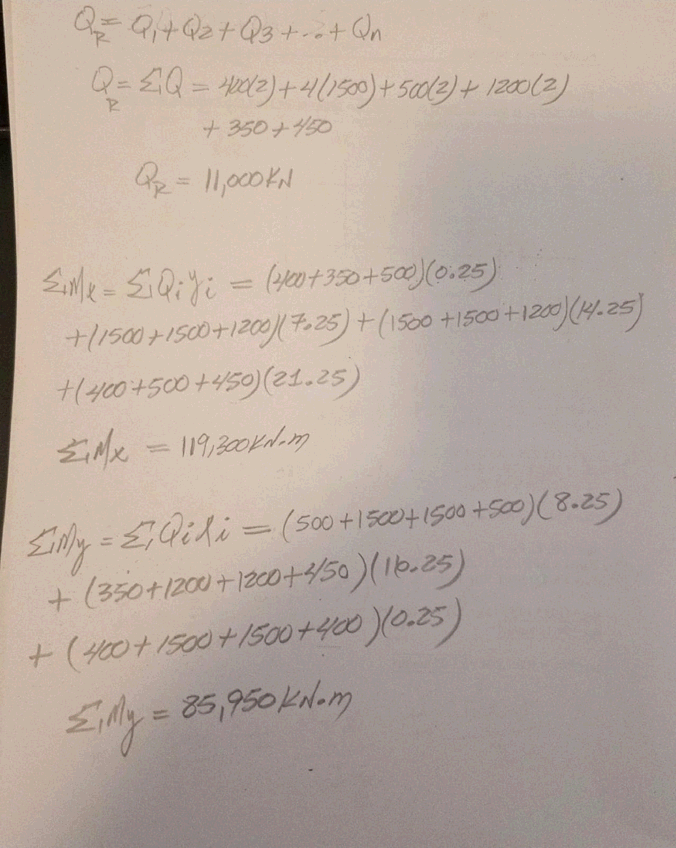 Q_R = Q₁ + Q₂ + Q₃ + ... + Qn
Q_R = ΣQ = 400(2) + 4(1500) + 500(2) + 1200(2)
+ 350 + 450
Q_R = 11,000 KN
ΣMx = ΣQiyi = (400+350+500)(0.25)
+(1500+1500+1200)(7.25) + (1500+1500+1200)(14.25)
+(400+500+450)(21.25)
ΣMx = 119,300 KN.m
ΣMy = ΣQixi = (500+1500+1500+500)(8.25)
+ (350+1200+1200+450)(16.25)
+ (400+1500+1500+400)(0.25)
ΣMy = 85,950 KN.m